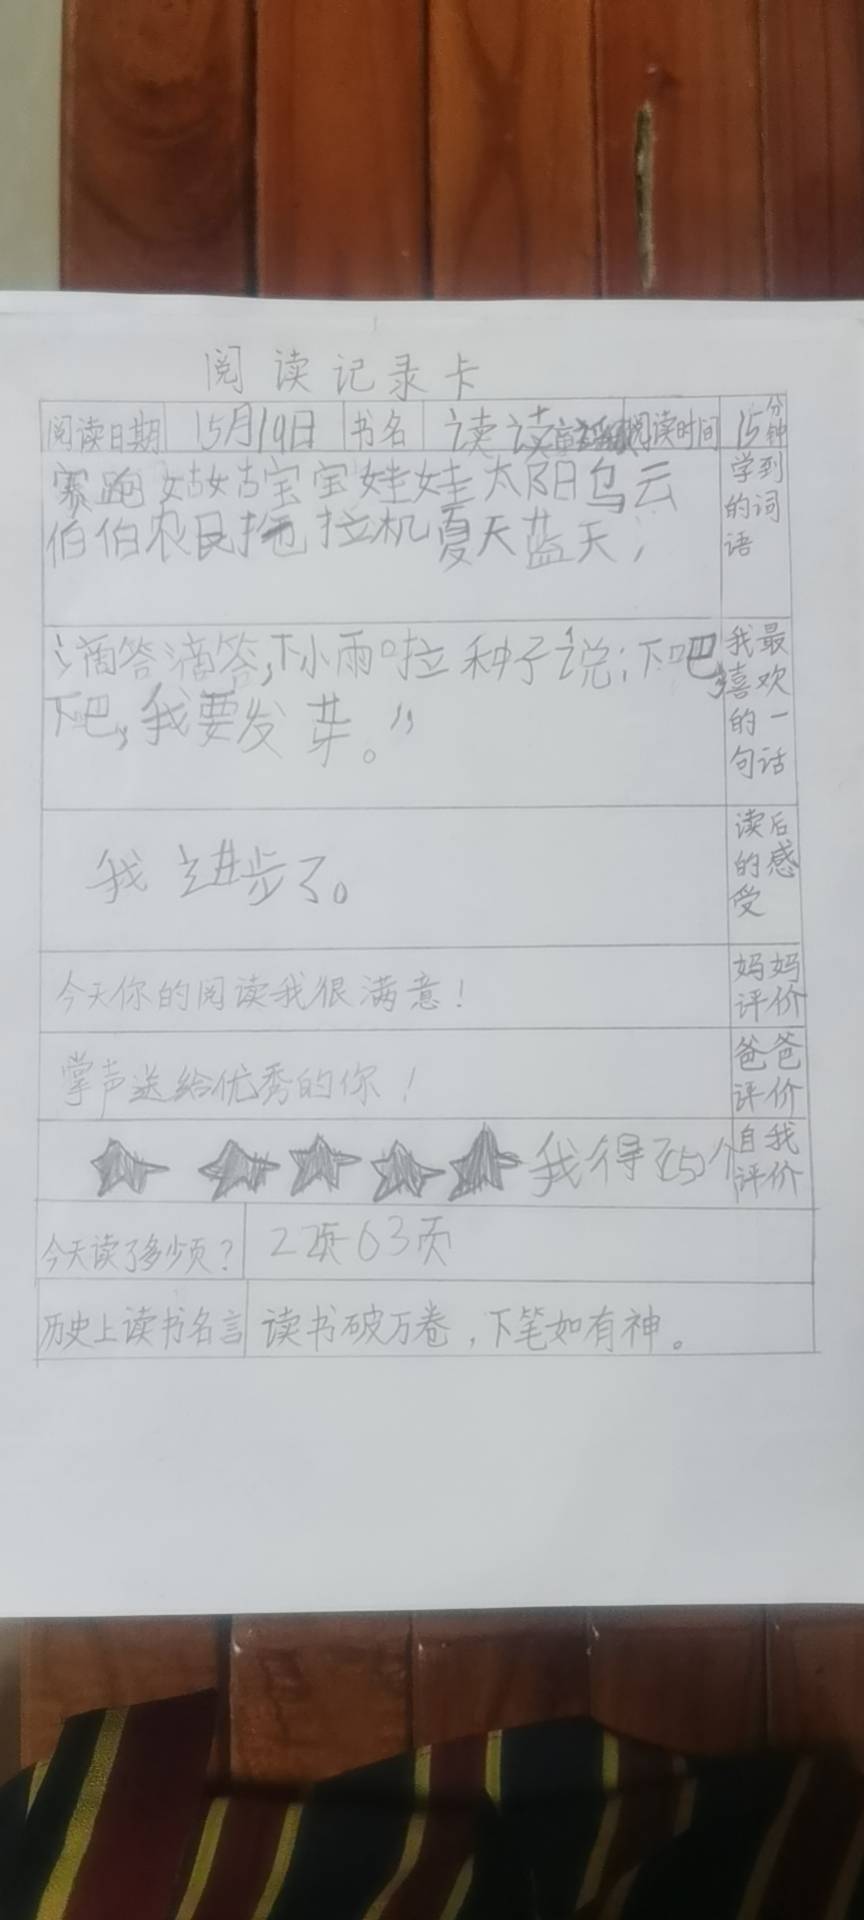 阅读记录卡
阅读日期 15月19日 书名 读读童谣 阅读时间 15分钟
赛跑姑姑宝宝娃娃太阳乌云
伯伯农民拖拉机夏天蓝天
学到
的词
语
滴答滴答,下小雨啦种子说:下吧,
下吧,我要发芽。"
我最
喜欢
的一
句话
我进步了。
读后
的感
受
今天你的阅读我很满意!
妈妈
评价
掌声送给优秀的你!
爸爸
评价
我得了5个
自我
评价
今天读了多少页? 2页63页
历史上读书名言 读书破万卷,下笔如有神。